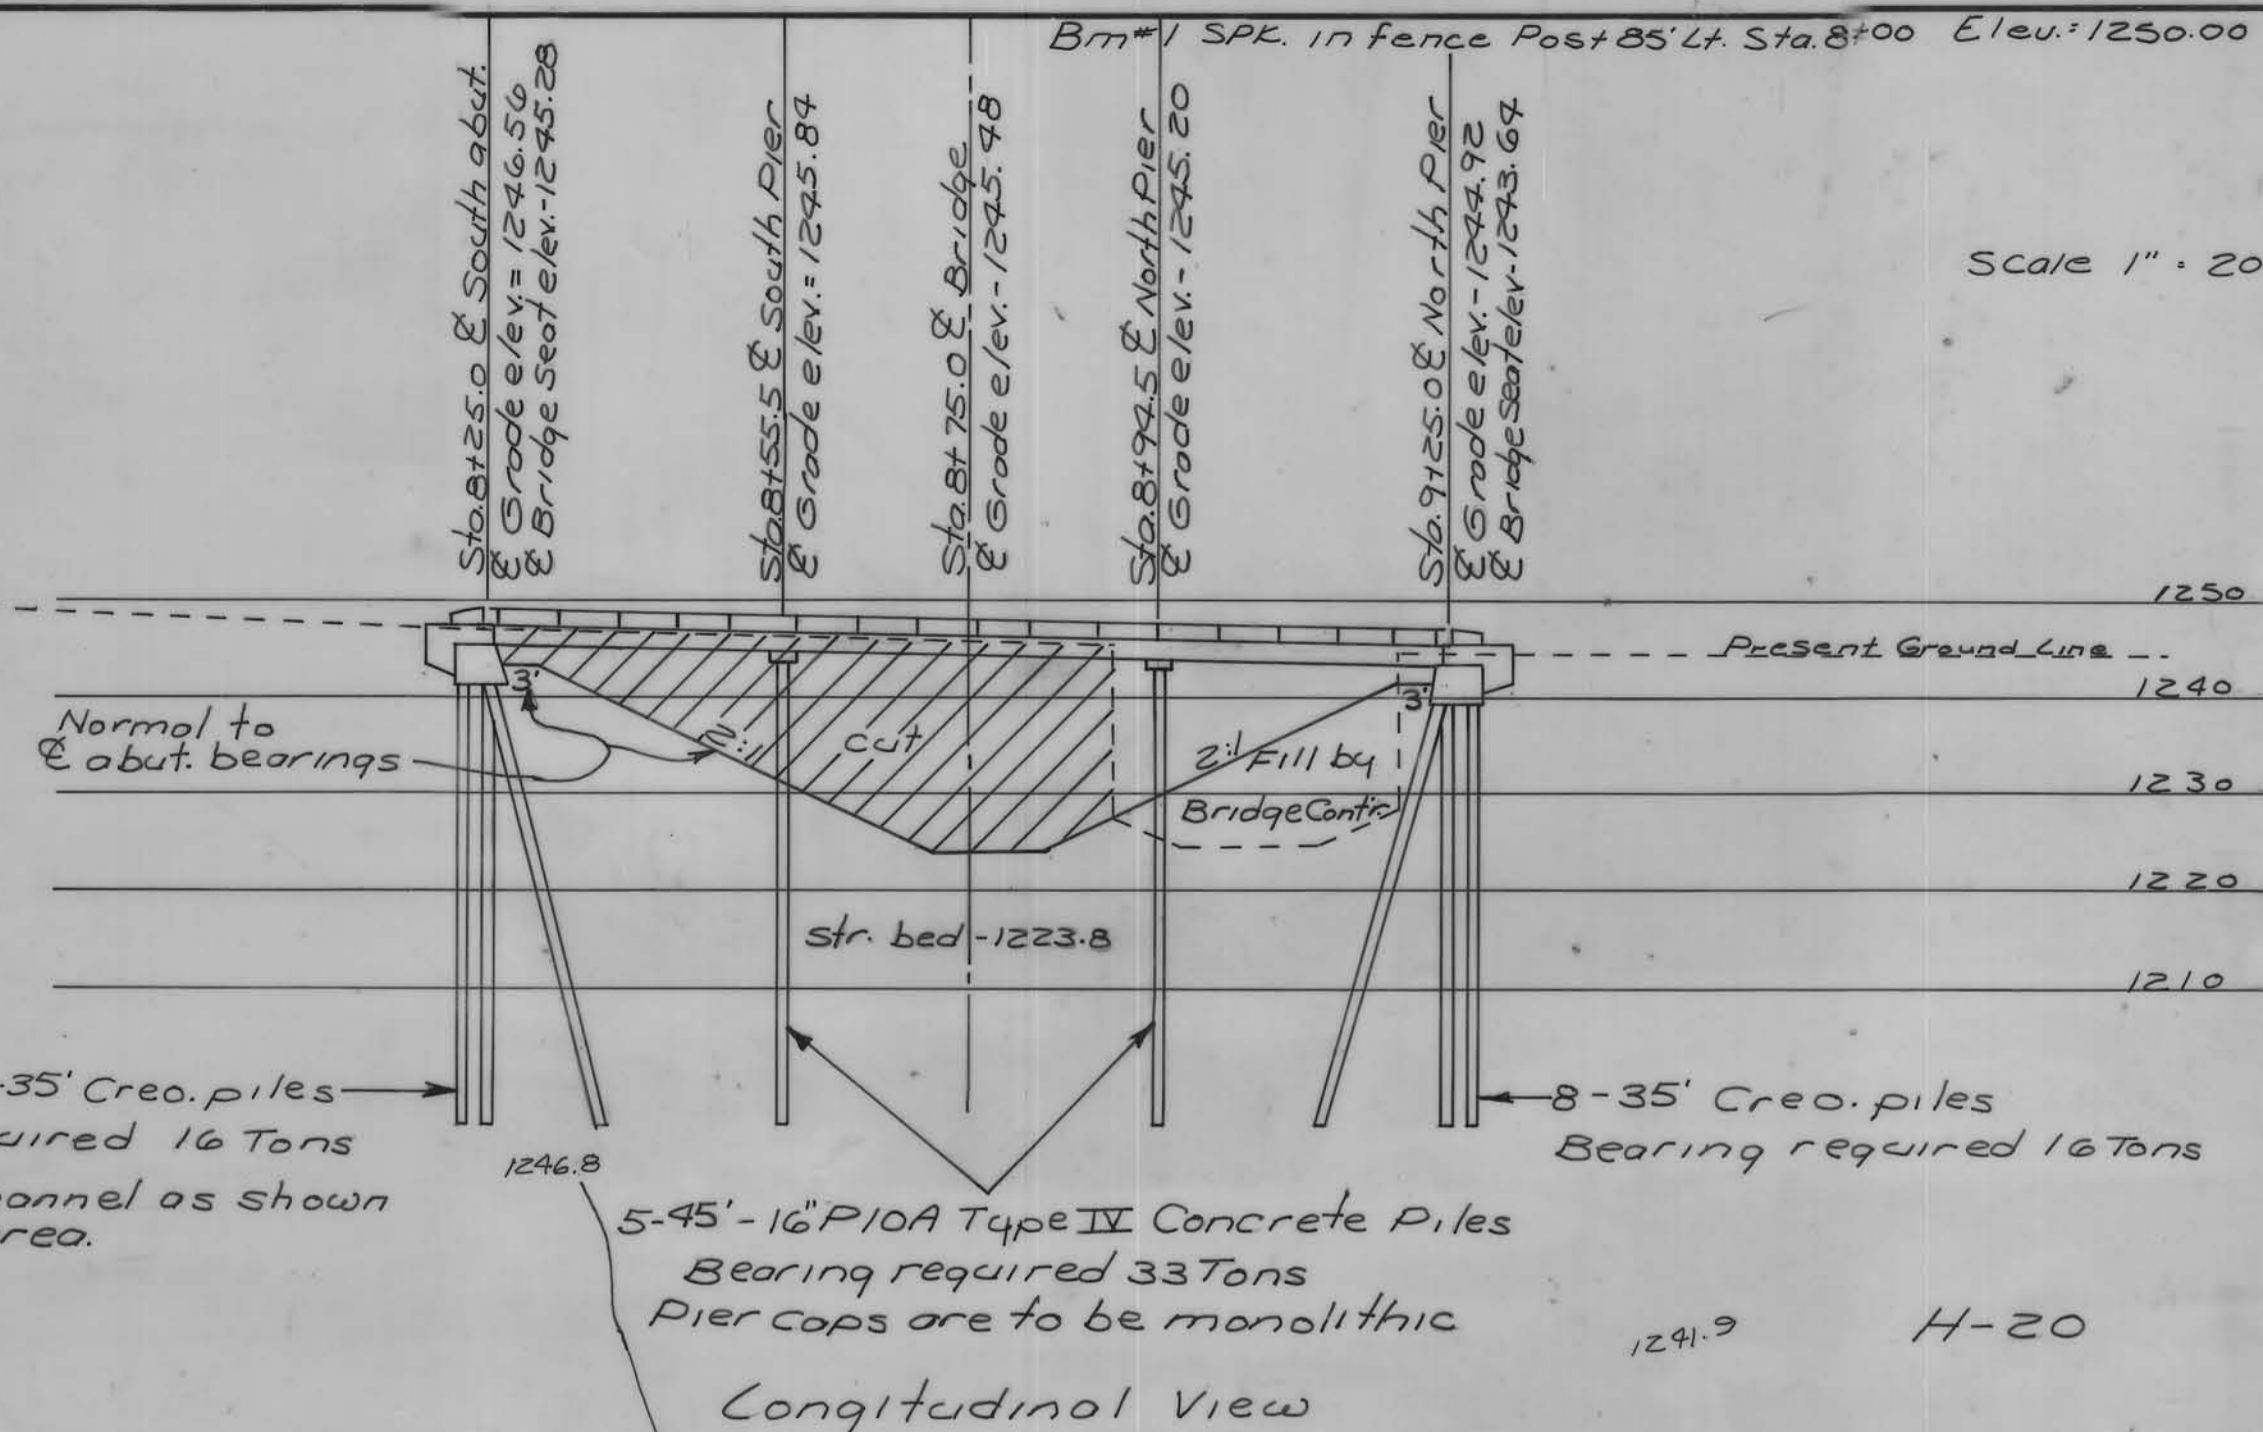 Bm#1 SPK. in fence Post 85' Lt. Sta. 8+00 Elev.: 1250.00
Sta. 8+25.0 ℄ South abut.
℄ Grade elev. = 1246.56
℄ Bridge Seat elev. - 1245.28
Sta. 8+55.5 ℄ South Pier
℄ Grade elev. = 1245.84
Sta. 8+75.0 ℄ Bridge
℄ Grade elev. - 1245.48
Sta. 8+94.5 ℄ North Pier
℄ Grade elev. - 1245.20
Sta. 9+25.0 ℄ North Pier
℄ Grade elev. - 1244.92
℄ Bridge Seat elev - 1243.64
Scale 1" = 20
1250
Present Ground Line
1240
3'
3'
Normal to
℄ abut. bearings
2:1
cut
2:1 Fill by
Bridge Contr.
1230
1220
Str. bed - 1223.8
1210
-35' Creo. piles
uired 16 Tons
annel as shown
rea.
1246.8
8-35' Creo. piles
Bearing required 16 Tons
5-45'-16" P10A Type IV Concrete Piles
Bearing required 33 Tons
Pier caps are to be monolithic
1241.9
H-20
Longitudinal View